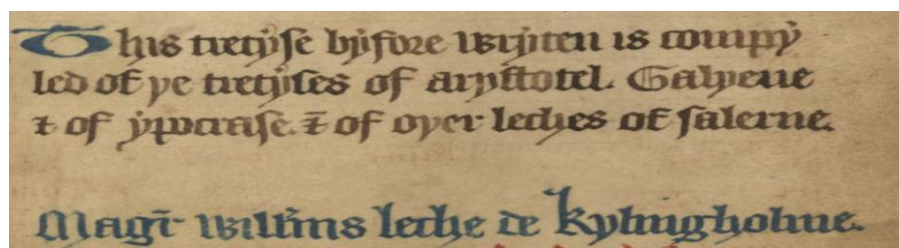 This tretyse byfore wryten is compy
led of ye tretyses of arystotel. Galyene
⁊ of ypocrase. ⁊ of oyer leches of salerne.
Magr̄ willms leche de kylingholme.